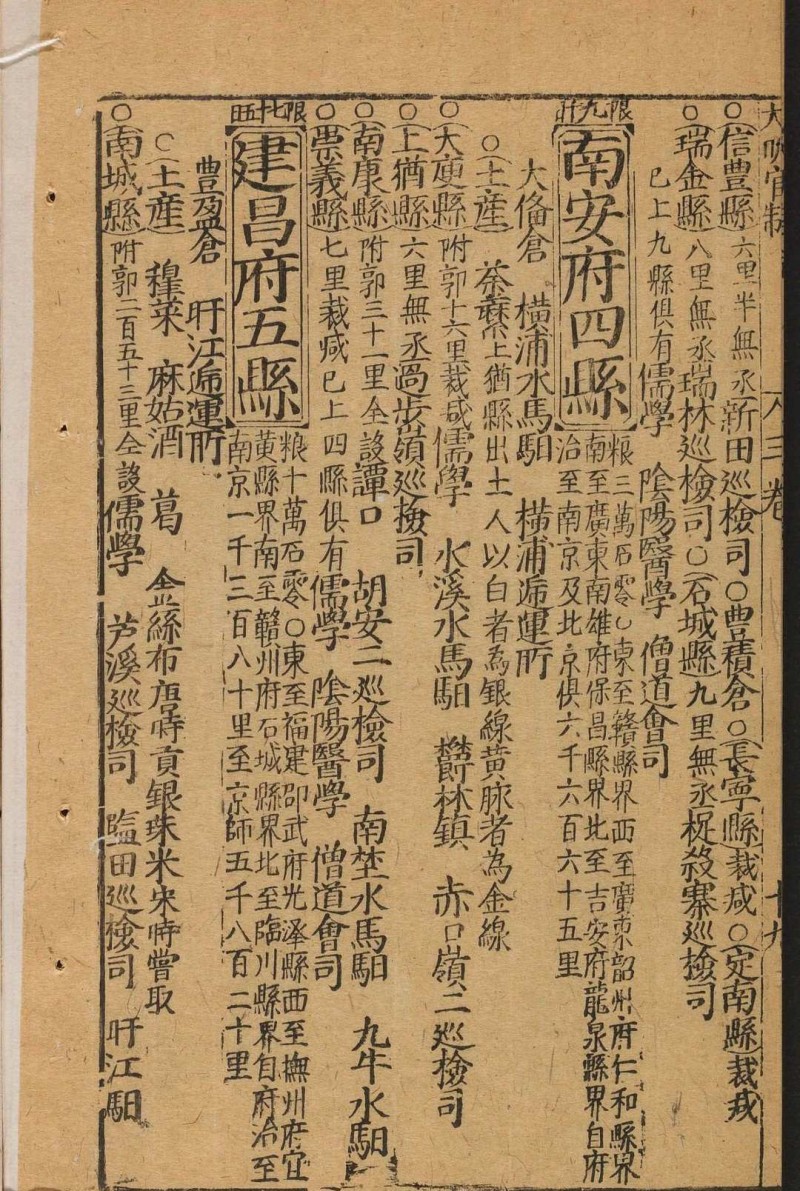 大明官制 八三卷 十九
○信豐縣六里半無丞新田巡檢司○豊積倉○長寧縣裁咸○定南縣裁咸
○瑞金縣八里無丞瑞林巡檢司○石城縣九里無丞捉殺寨巡撿司
已上九縣俱有儒學 陰陽醫學 僧道會司
限九
南安府四縣
粮三萬石零○東至贛縣界西至廣東韶州府仁和縣界
南至廣東南雄府保昌縣界北至吉安府龍泉縣界自府
治至南京及北京俱六千六百六十五里
大俻倉 橫浦水馬馹 橫浦逓運所
○土産 茶蘪上猶縣出土人以白者為銀線黄脉者為金線
○大庾縣附郭十六里裁咸儒學 水溪水馬馹 欝林鎮 赤口嶺二巡撿司
○上猶縣六里無丞過步嶺巡撿司
○南康縣附郭三十一里全設潭口 胡安二巡撿司 南埜水馬馹 九牛水馹
○崇義縣七里裁咸已上四縣俱有儒學 陰陽醫學 僧道會司
限七十五
建昌府五縣
粮十萬石零○東至福建邵武府光澤縣西至撫州府宜
黄縣界南至贛州府石城縣界北至臨川縣界自府治至
南京一千三百八十里至京師五千八百二十里
豊盈倉 旴江逓運所
○土産 穜菜 麻姑酒 葛 金絲布唐時貢銀珠米宋時嘗取
○南城縣附郭二百五十三里全設儒學 芦溪巡撿司 藍田巡撿司 旴江馹